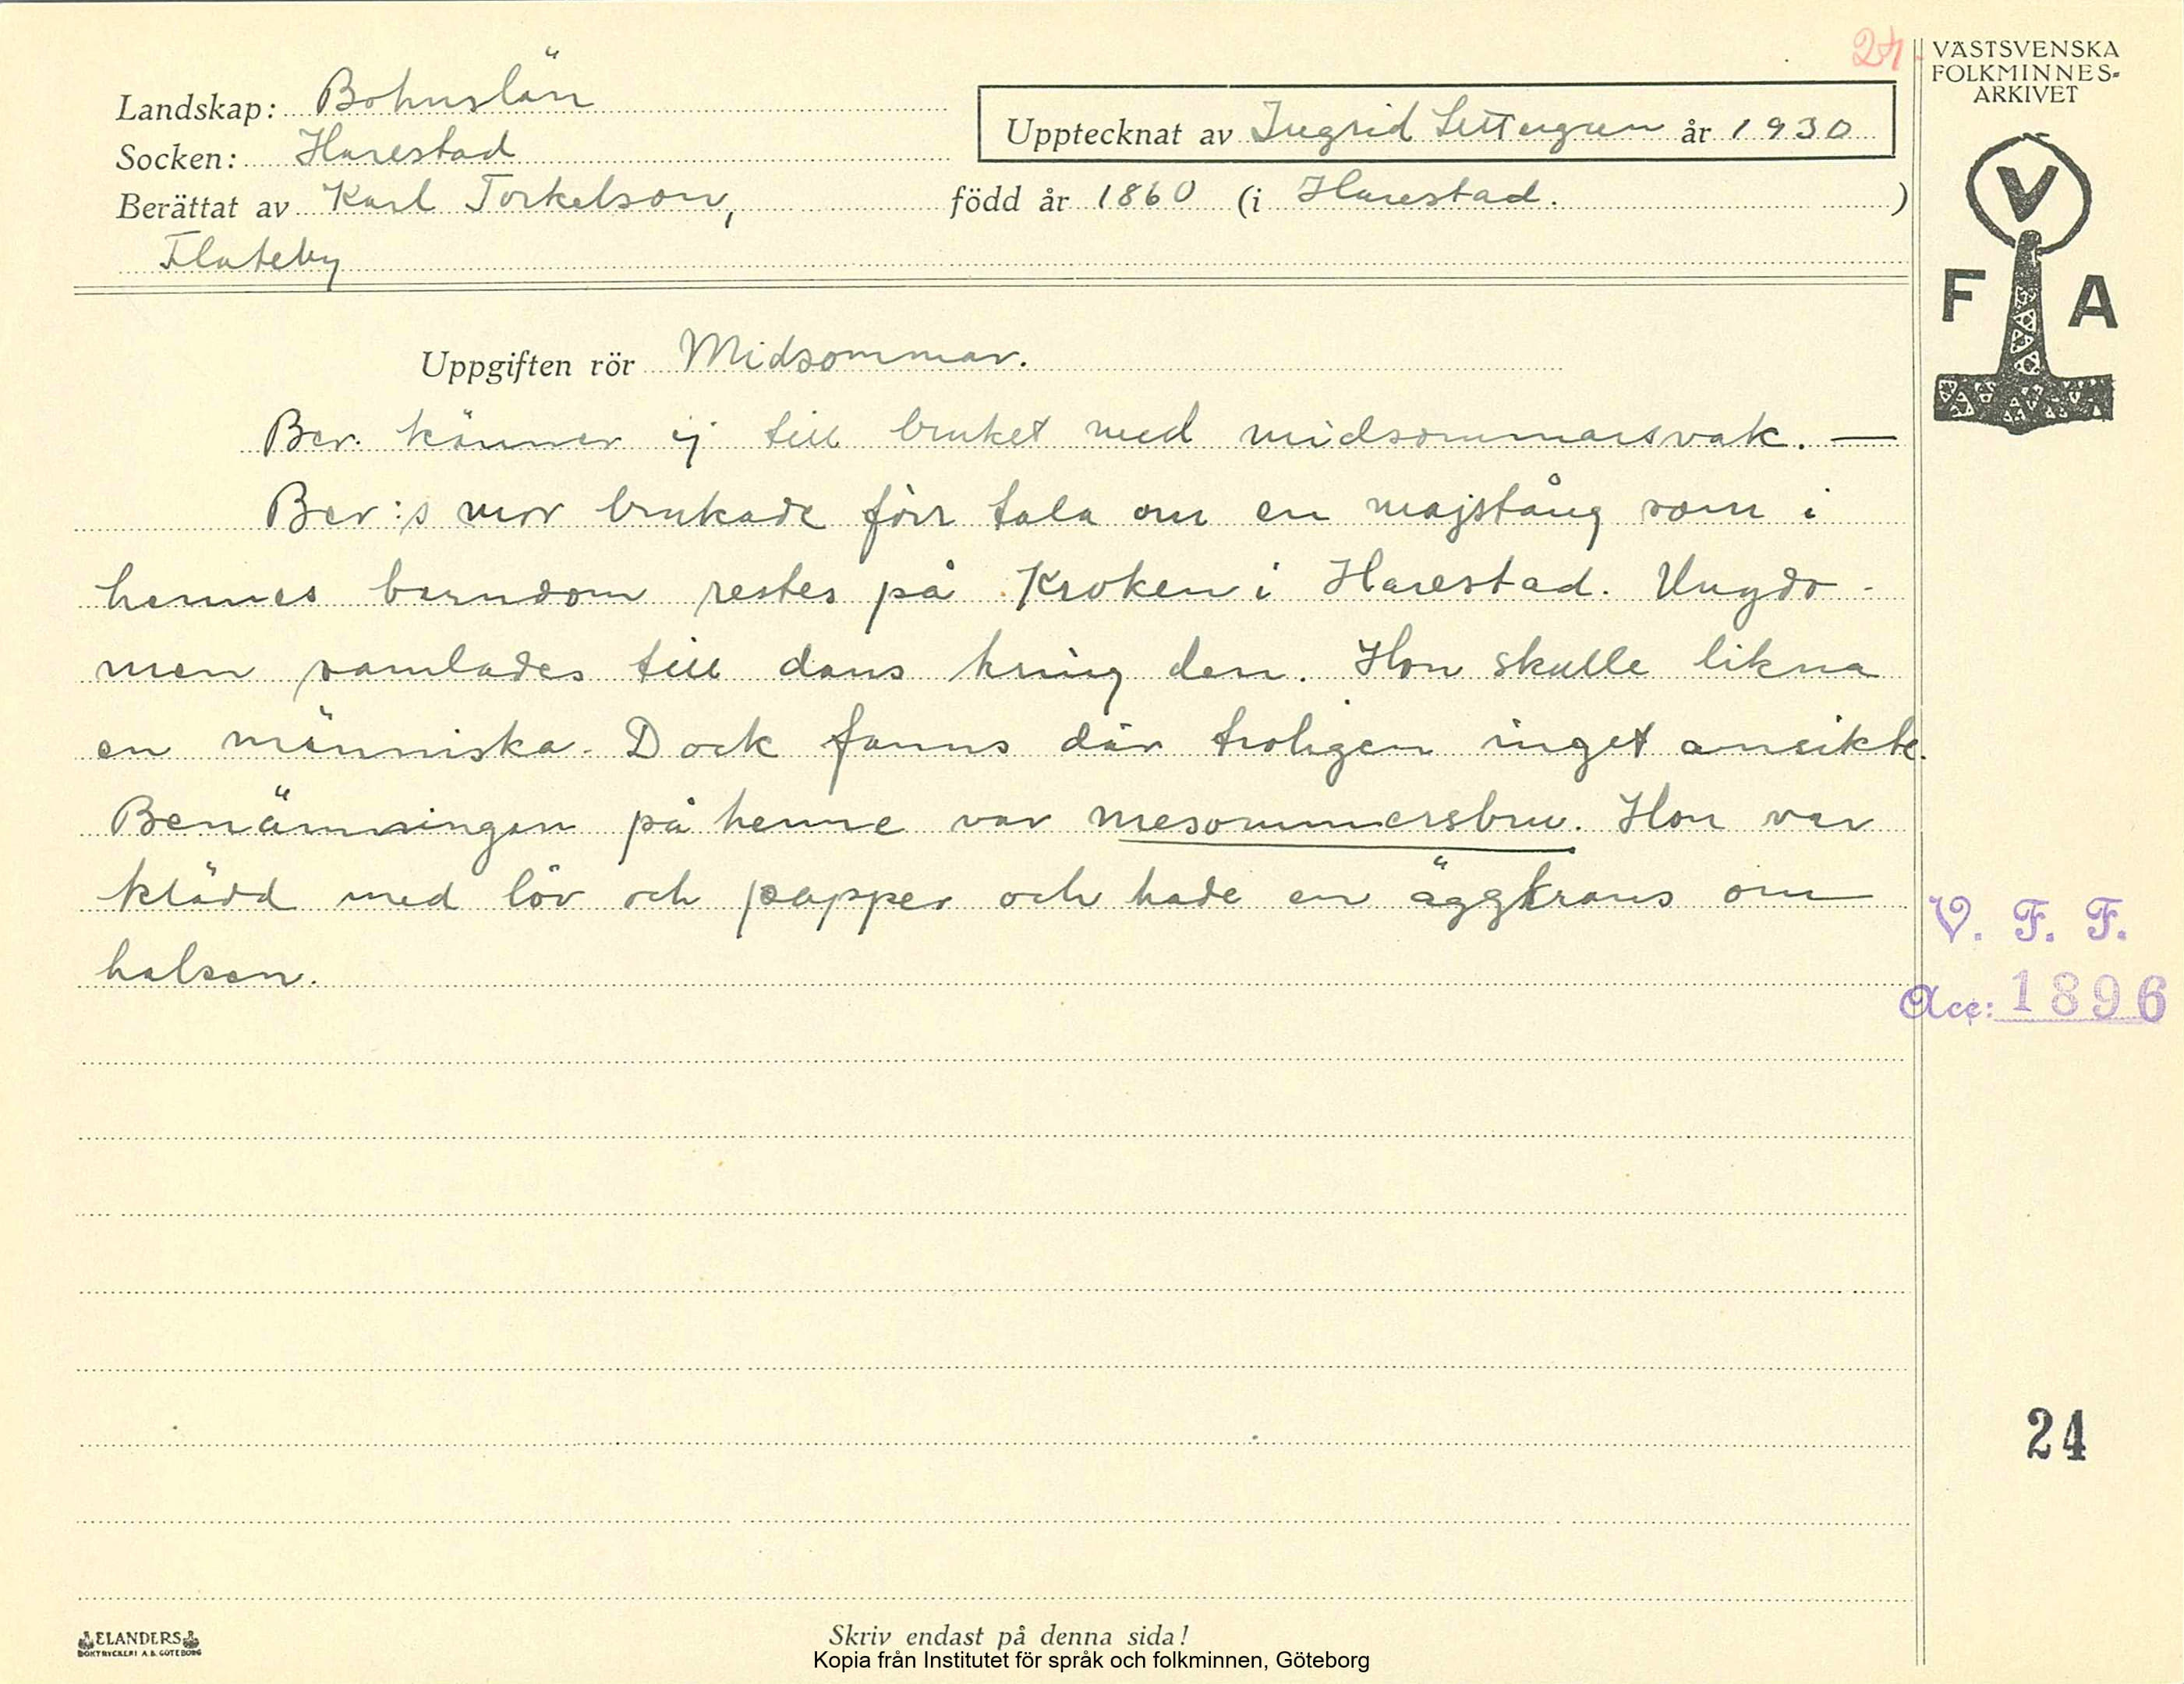 24.
VÄSTSVENSKA
FOLKMINNES-
ARKIVET
Landskap: Bohuslän
Upptecknat av Ingrid Settergren år 1930
Socken: Harestad
Berättat av Karl Torkelson, född år 1860 (i Harestad. )
Flateby
V
F A
Uppgiften rör Midsommar.
Ber. känner ej till bruket med midsommarsvak. —
Ber:s mor brukade förr tala om en majstång som i
hennes barndom restes på Kroken i Harestad. Ungdo-
men samlades till dans kring den. Hon skulle likna
en människa. Dock fanns där troligen inget ansikte.
Benämningen på henne var mesommersbru. Hon var
klädd med löv och papper och hade en äggkrans om
halsen.
V. F. F.
Acc: 1896
24
ELANDERS
BOKTRYCKERI A.B. GÖTEBORG
Skriv endast på denna sida!
Kopia från Institutet för språk och folkminnen, Göteborg